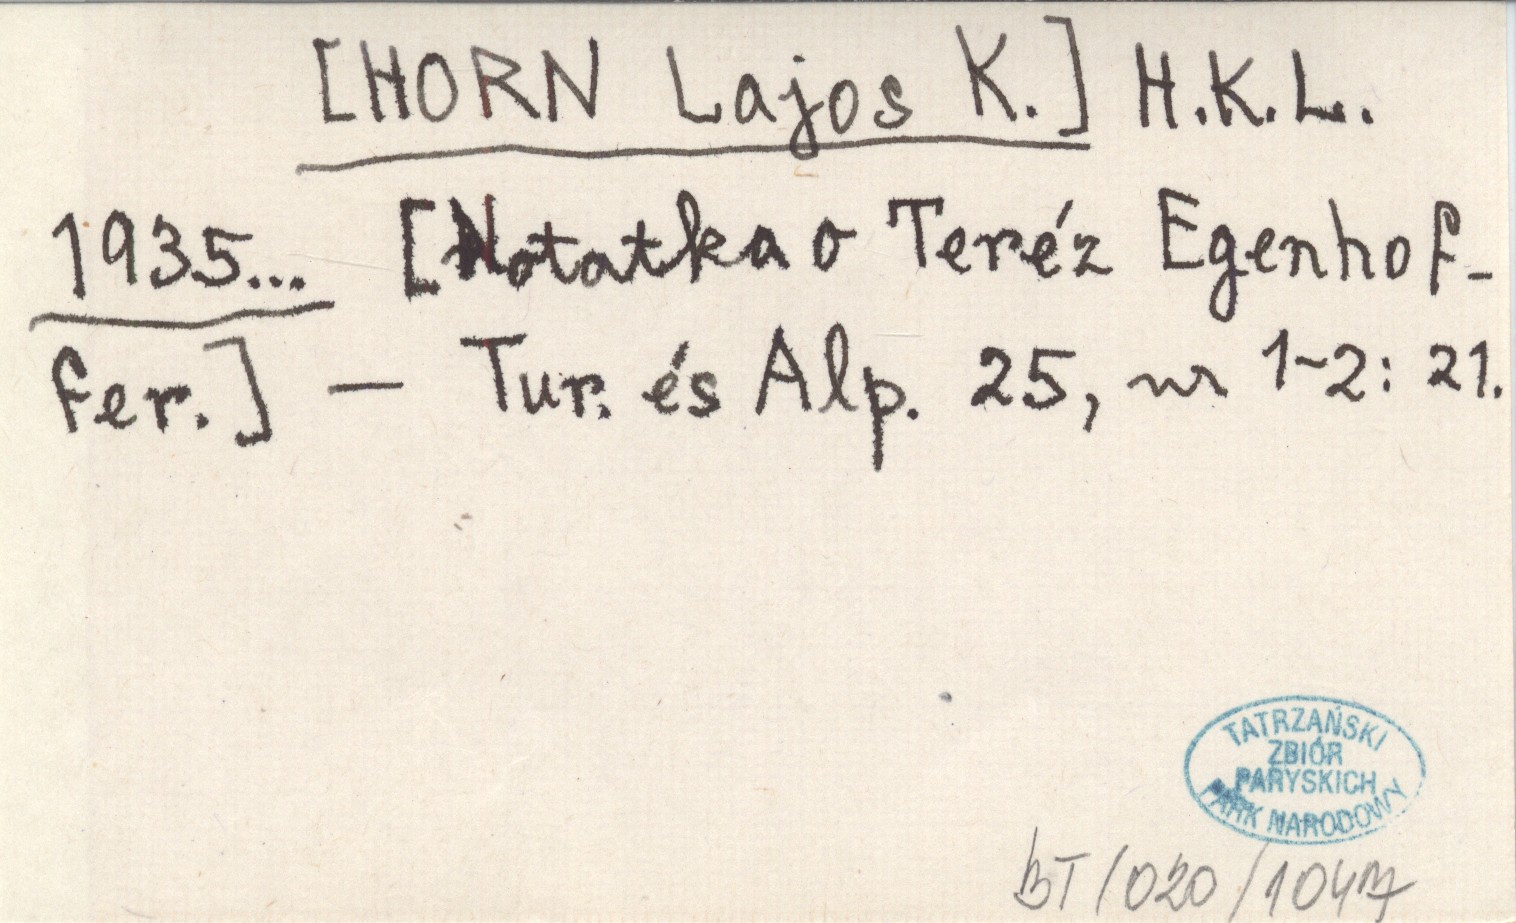 [HORN Lajos K.] H.K.L.
1935... [Notatka o Teréz Egenhof-
fer.] — Tur. és Alp. 25, nr 1-2: 21.
TATRZAŃSKI
ZBIÓR
PARYSKICH
PARK NARODOWY
BT/020/1047